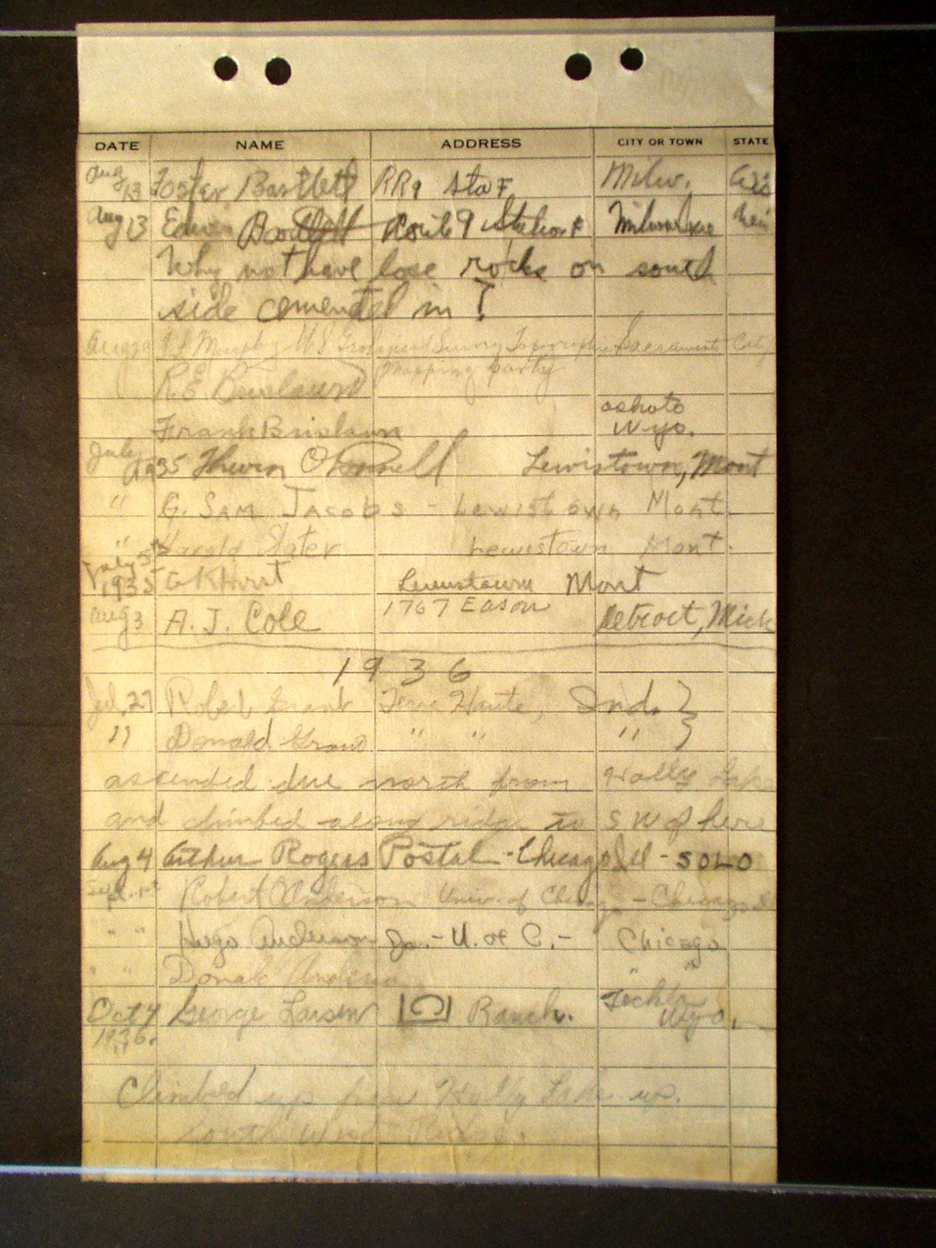 DATE NAME ADDRESS CITY OR TOWN STATE
Aug 13 Foster Bartlett RR9 Sta F Milw. Wis
Aug 13 Edwin Bartlett Route 9 Station F Milwaukee Wis
Why not have lose rocks on south
side cemented in ?
Murphy U.S. Survey Sacramento
R.E. Mapping party
Frank Brislawn oshoto Wyo.
July 35 O'Connell Lewistown, Mont
" G. SAM JACOBS - Lewistown Mont.
" Harold Slater Lewistown Mont.
July 5th 1935 Hurst Lewistown Mont
Aug 3 A. J. Cole 1767 Eason Detroit, Mich
1936
Jul. 27 Robert Grant Terre Haute, Ind. }
11 Donald Grant " " " }
ascended due north from Holly Lake
and climbed along ridge to SW of here
Aug 4 Arthur Rogers Postal - Chicago Ill - SOLO
Sept. 1st Robert Anderson Univ. of Chicago - Chicago Ill
" " Hugo Anderson Jr. - U. of C. - Chicago
" " Donald Anderson "
Oct 4 George Larsen Ranch. Teckla Wyo.
1936.
Climbed up from Holly Lake up.
South West Ridge.